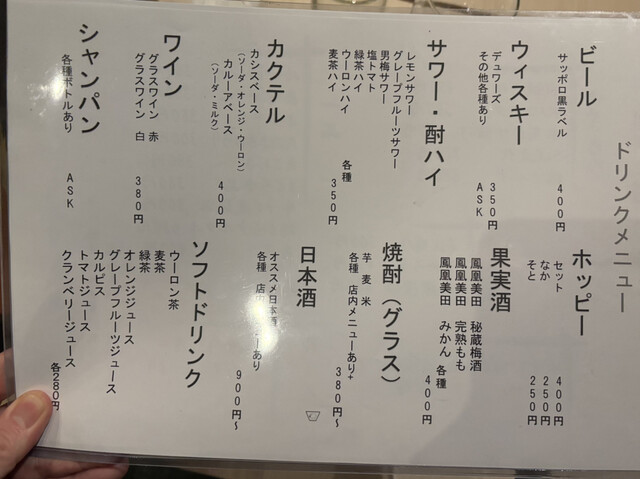 ドリンクメニュー
ビール
サッポロ黒ラベル 400円
ウィスキー
デュワーズ 350円
その他各種あり ASK
サワー・酎ハイ
レモンサワー
グレープフルーツサワー
男梅サワー
塩トマト
緑茶ハイ
ウーロンハイ
麦茶ハイ
各種 350円
カクテル
カシスベース
(ソーダ・オレンジ・ウーロン)
カルーアベース
(ソーダ・ミルク)
400円
ワイン
グラスワイン 赤
グラスワイン 白
380円
シャンパン
各種ボトルあり ASK
ホッピー
セット 400円
なか 250円
そと 250円
果実酒
鳳凰美田 秘蔵梅酒
鳳凰美田 完熟もも
鳳凰美田 みかん
各種 400円
焼酎(グラス)
芋 麦 米
各種 店内メニューあり+
380円~
日本酒
オススメ日本酒
各種 店内 ーあり
900円~
ソフトドリンク
ウーロン茶
麦茶
緑茶
オレンジジュース
グレープフルーツジュース
カルピス
トマトジュース
クランベリージュース
各280円